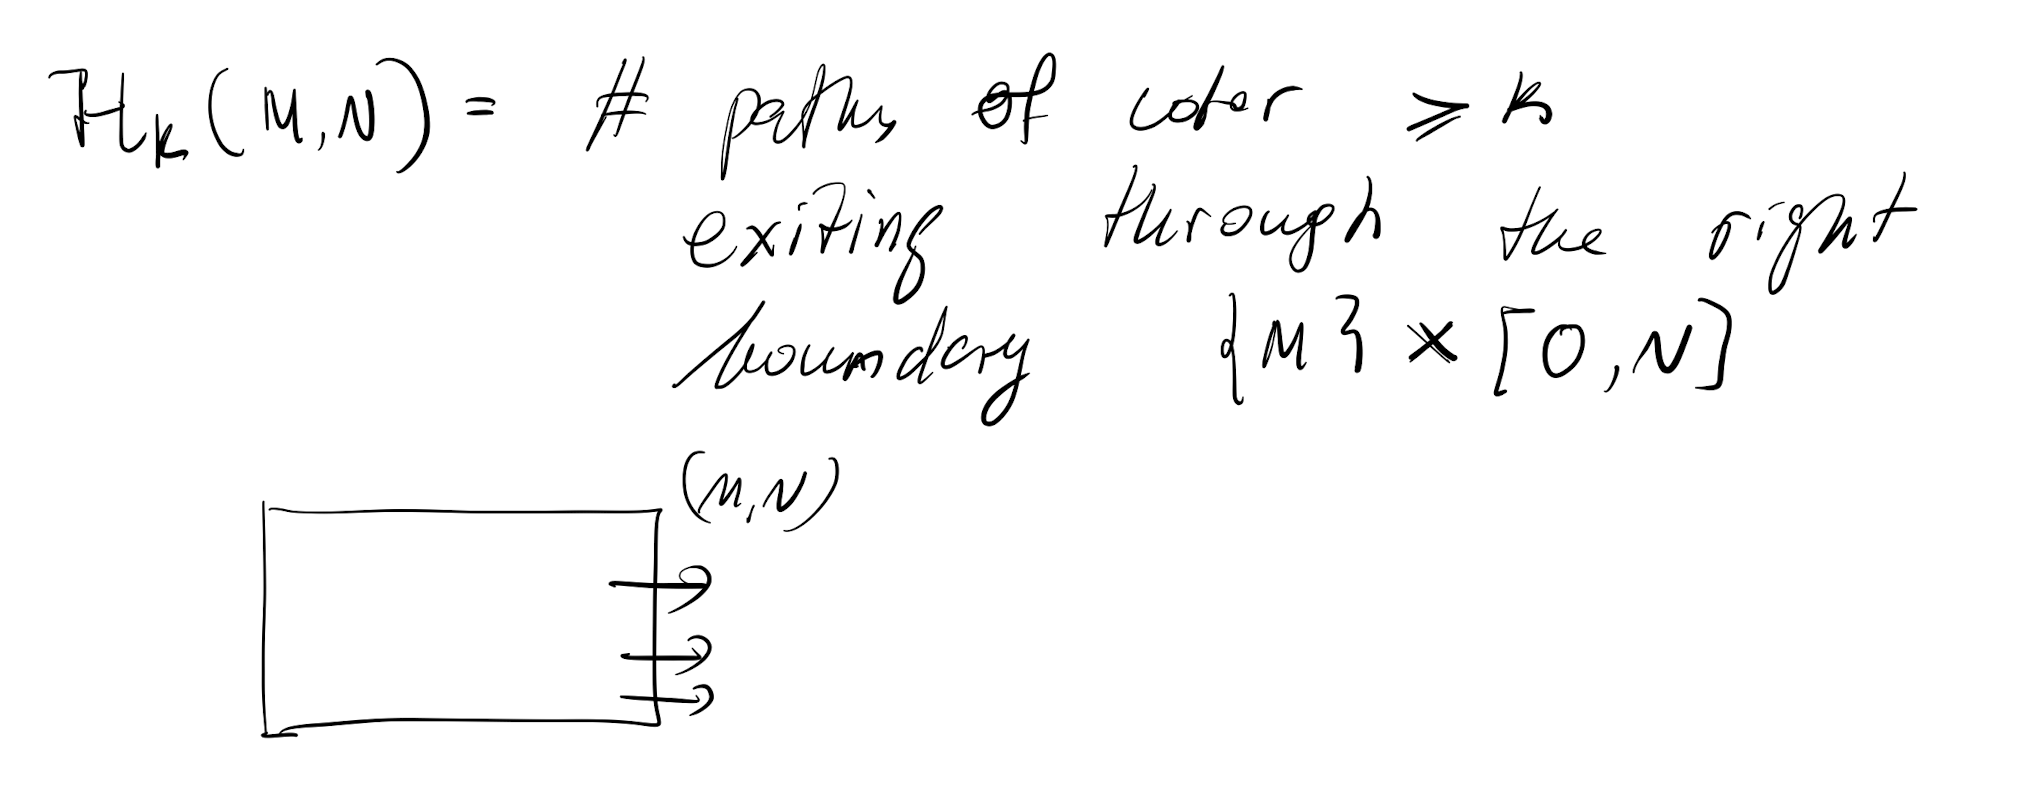 ℋₖ(M,N) = # paths of color ⩾ k
exiting through the right
boundary {M} × [0,N]
(M,N)